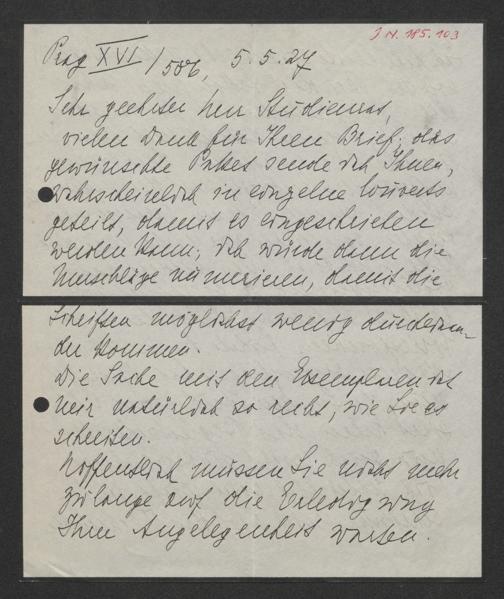 J N. 185.103
Prag XVI / 586, 5.5.27
Sehr geehrter Herr Studienrat,
vielen Dank für Ihren Brief; das
gewünschte Paket sende ich Ihnen,
wahrscheinlich in einzelne Couverts
geteilt, damit es eingeschrieben
werden kann; ich würde dann die
Umschläge numerieren, damit die
Schriften möglichst wenig durcheinan-
der kommen.
Die Sache mit den Exemplaren ist
mir natürlich so recht, wie Sie es
schreiben.
Hoffentlich müssen Sie nicht mehr
zu lange auf die Erledigung
Ihrer Angelegenheit warten.